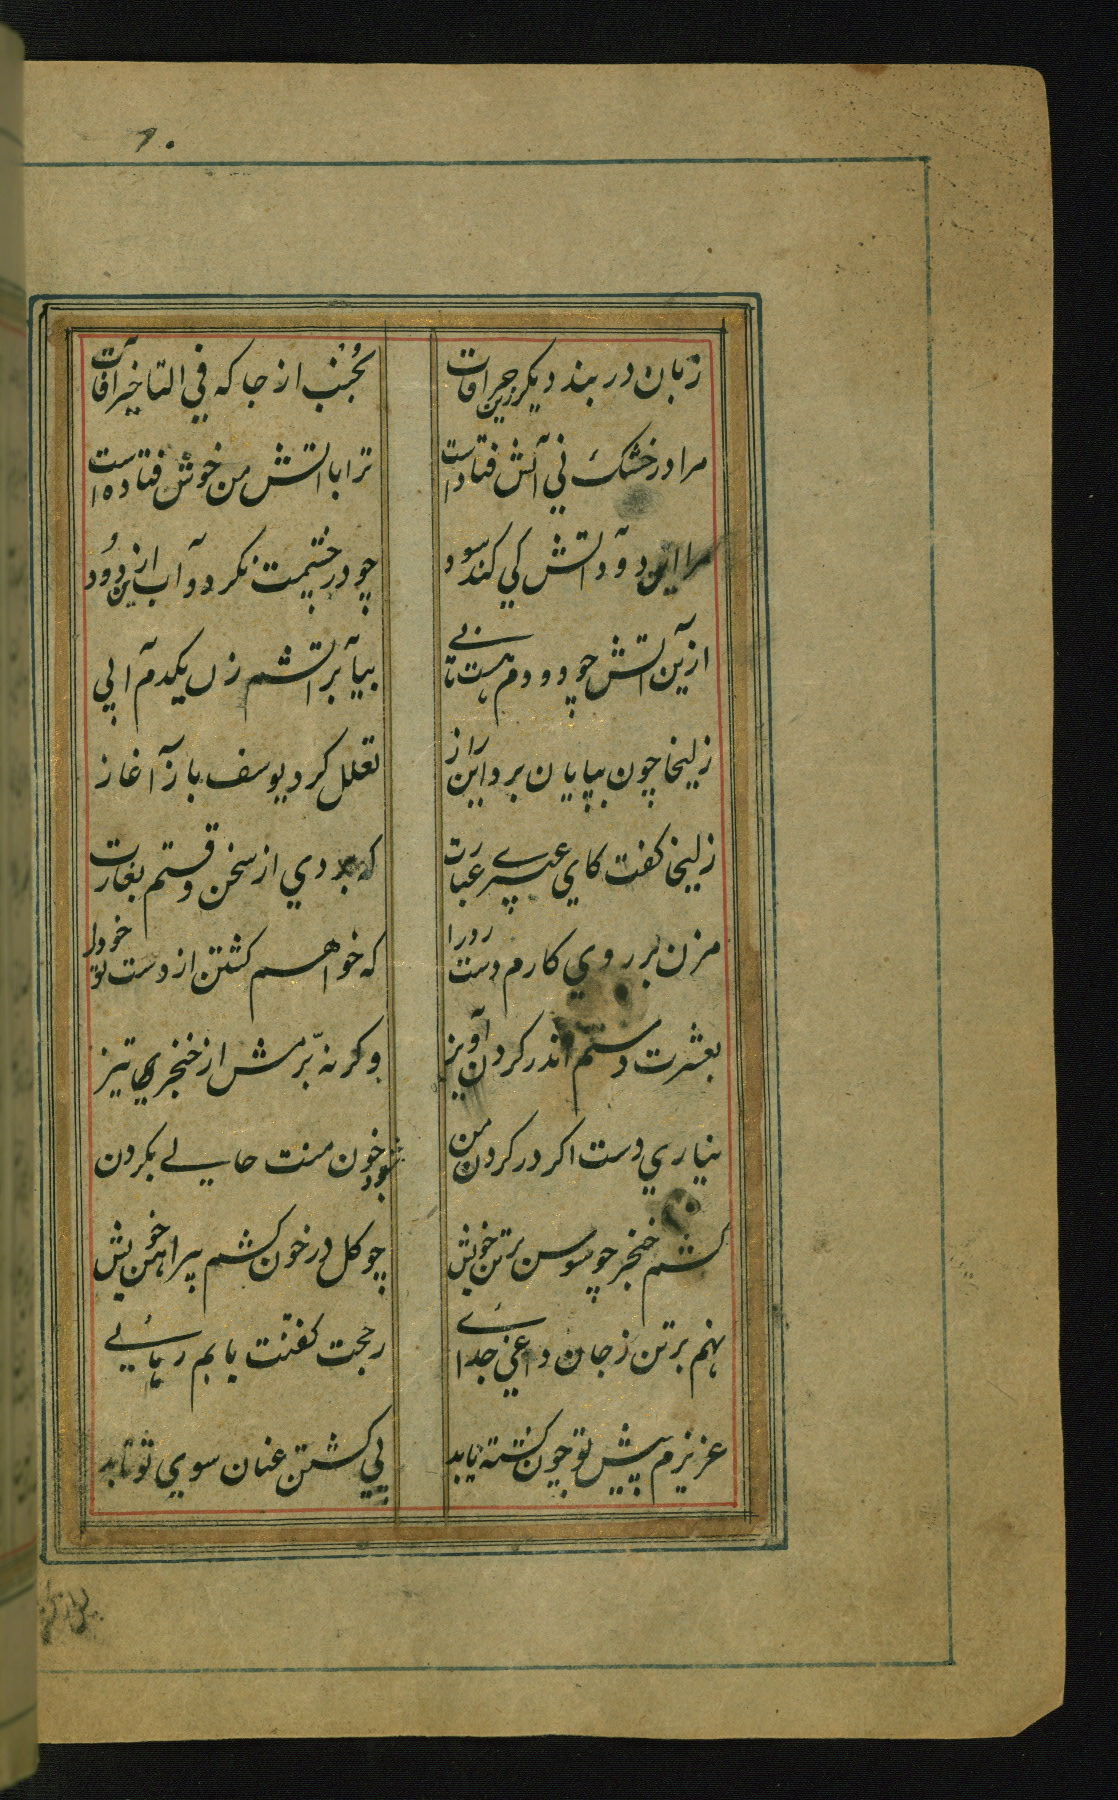 ۹۰
زبان در بند دیکر زین خرافات بجُنب از جا که فی التاخیر آفات
مرا در خشک نی آتش فتاد است ترا با آتش من خوش فتاده است
مرا این دود و آتش کی کند سود چو در چشمت نکردد آب ازین دود
ازین آتش چو دودم هست تابی بیا بر آتشم زن یکدم آبی
زلیخا چون بپایان برد این راز تعلل کرد یوسف باز آغاز
زلیخا کفت کای عبری عبارت که بردی از سخن وقتم بغارت
مزن بر روی کارم دست رد را که خواهم کشتن از دست تو خود را
بعشرت دستم اندر کردن آویز وکرنه برّمش از خنجری تیز
نیاری دست اکر در کردن من شود خون منت حالی بکردن
کشم خنجر چو سوسن بر تن خویش چو کل در خون کشم پیراهن خویش
نهم بر تن ز جان داغ جدائی ز حجت کفتنت یابم رهائی
عزیزم پیش تو چون کشته یابد پی کشتن عنان سوی تو تابد